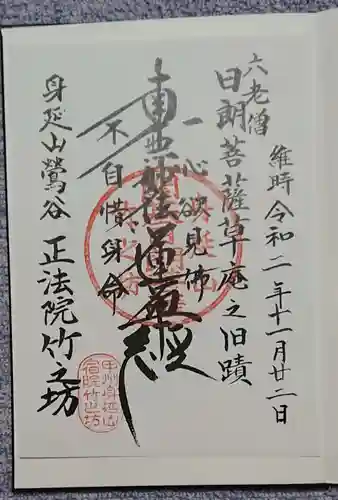 維時令和二年十一月廿二日
六老僧
日朗菩薩草庵之旧蹟
一心欲見佛
南無妙法蓮華経
不自惜身命
身延山鶯谷 正法院竹之坊
甲州身延山
宿院竹之坊